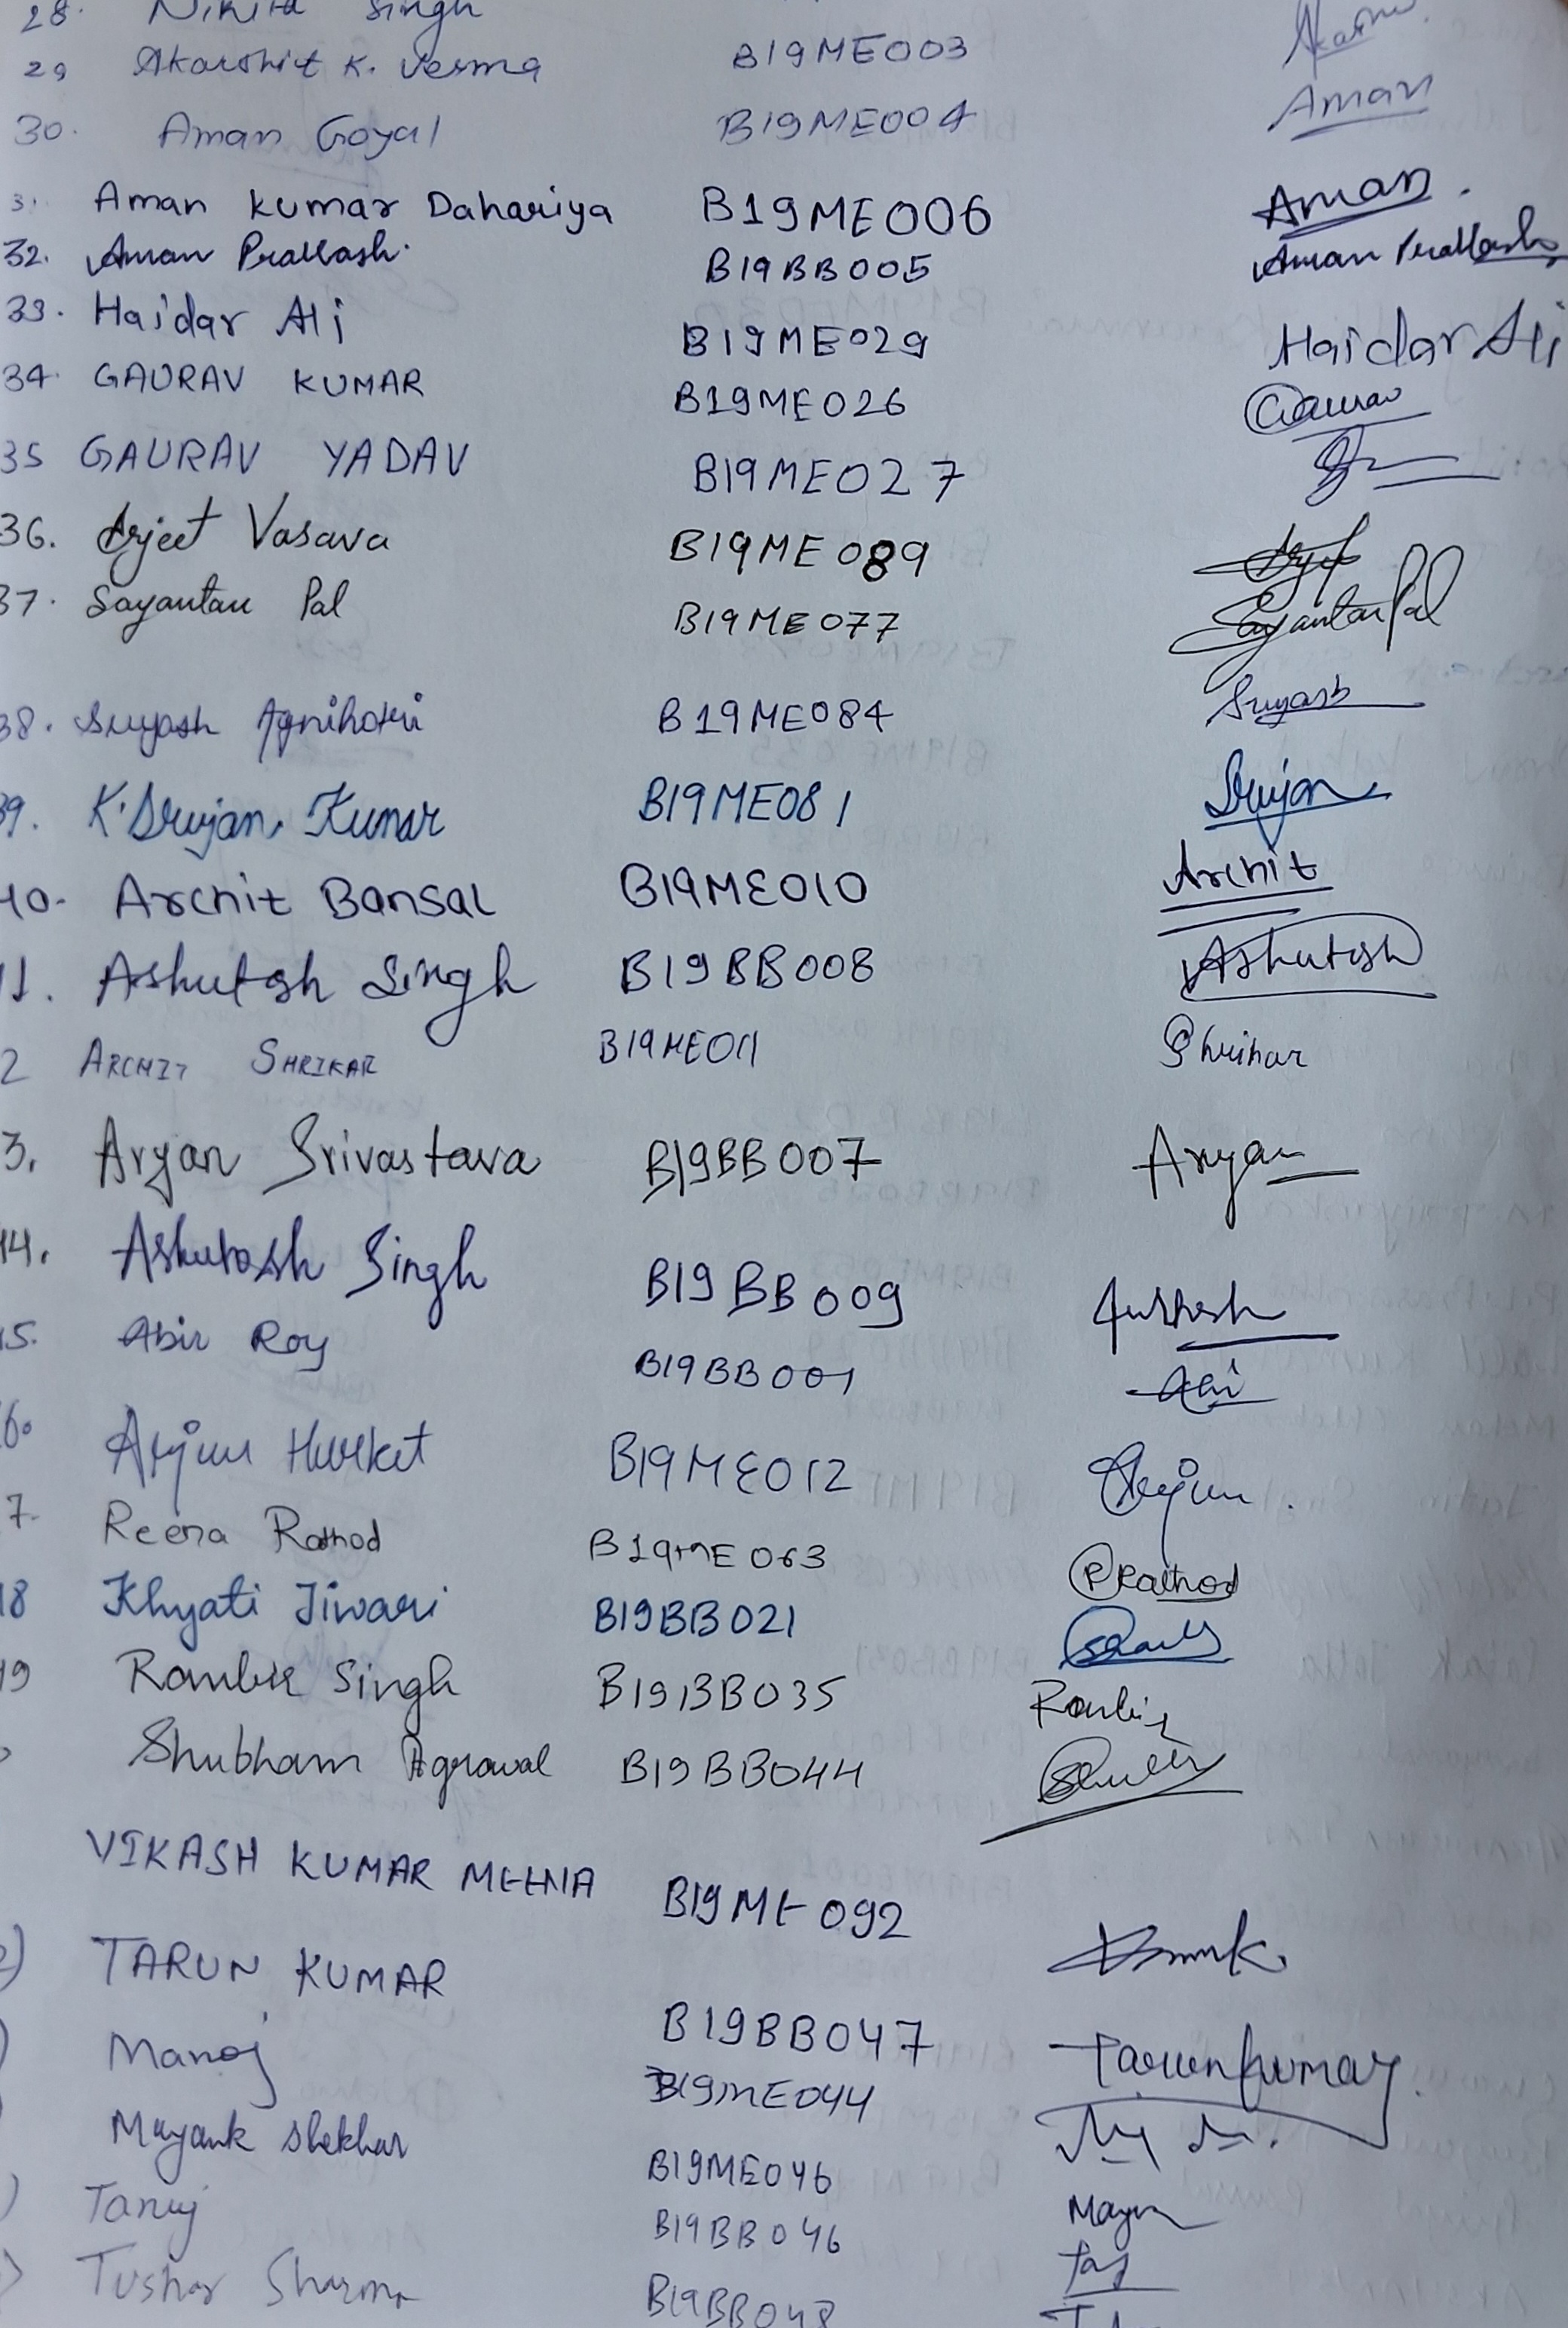 28. Nikita Singh
29 Akarshit K. Verma B19ME003
30. Aman Goyal B19ME004 Aman
31. Aman Kumar Dahariya B19ME006 Aman.
32. Aman Prakash. B19BB005 Aman Prakash
33. Haidar Ali B19ME029 Haidar Ali
34. GAURAV KUMAR B19ME026 Gaurav
35 GAURAV YADAV B19ME027
36. Arjeet Vasava B19ME089
37. Sayantan Pal B19ME077 Sayantan Pal
38. Suyash Agnihotri B19ME084 Suyash
39. K. Srujan Kumar B19ME081 Srujan
40. Archit Bansal B19ME010 Archit
11. Ashutosh Singh B19BB008 Ashutosh
2 ARCHIT SHRIKAR B19ME011 Shrikar
3. Aryan Srivastava B19BB007 Aryan
44. Ashutosh Singh B19BB009
45. Abir Roy B19BB001 Abir
6. Arjun Hurket B19ME012 Arjun.
7. Reena Rathod B19ME063 R Rathod
18 Khyati Tiwari B19BB021
19 Ranbir Singh B19BB035 Ranbir
Shubham Agrawal B19BB044
VIKASH KUMAR MEENA B19ME092
2) TARUN KUMAR B19BB047 Tarun kumar.
Manoj B19ME044
Mayank Shekhar B19ME046 Mayank
Tanuj B19BB046 Taj
Tushar Sharma B19BB048